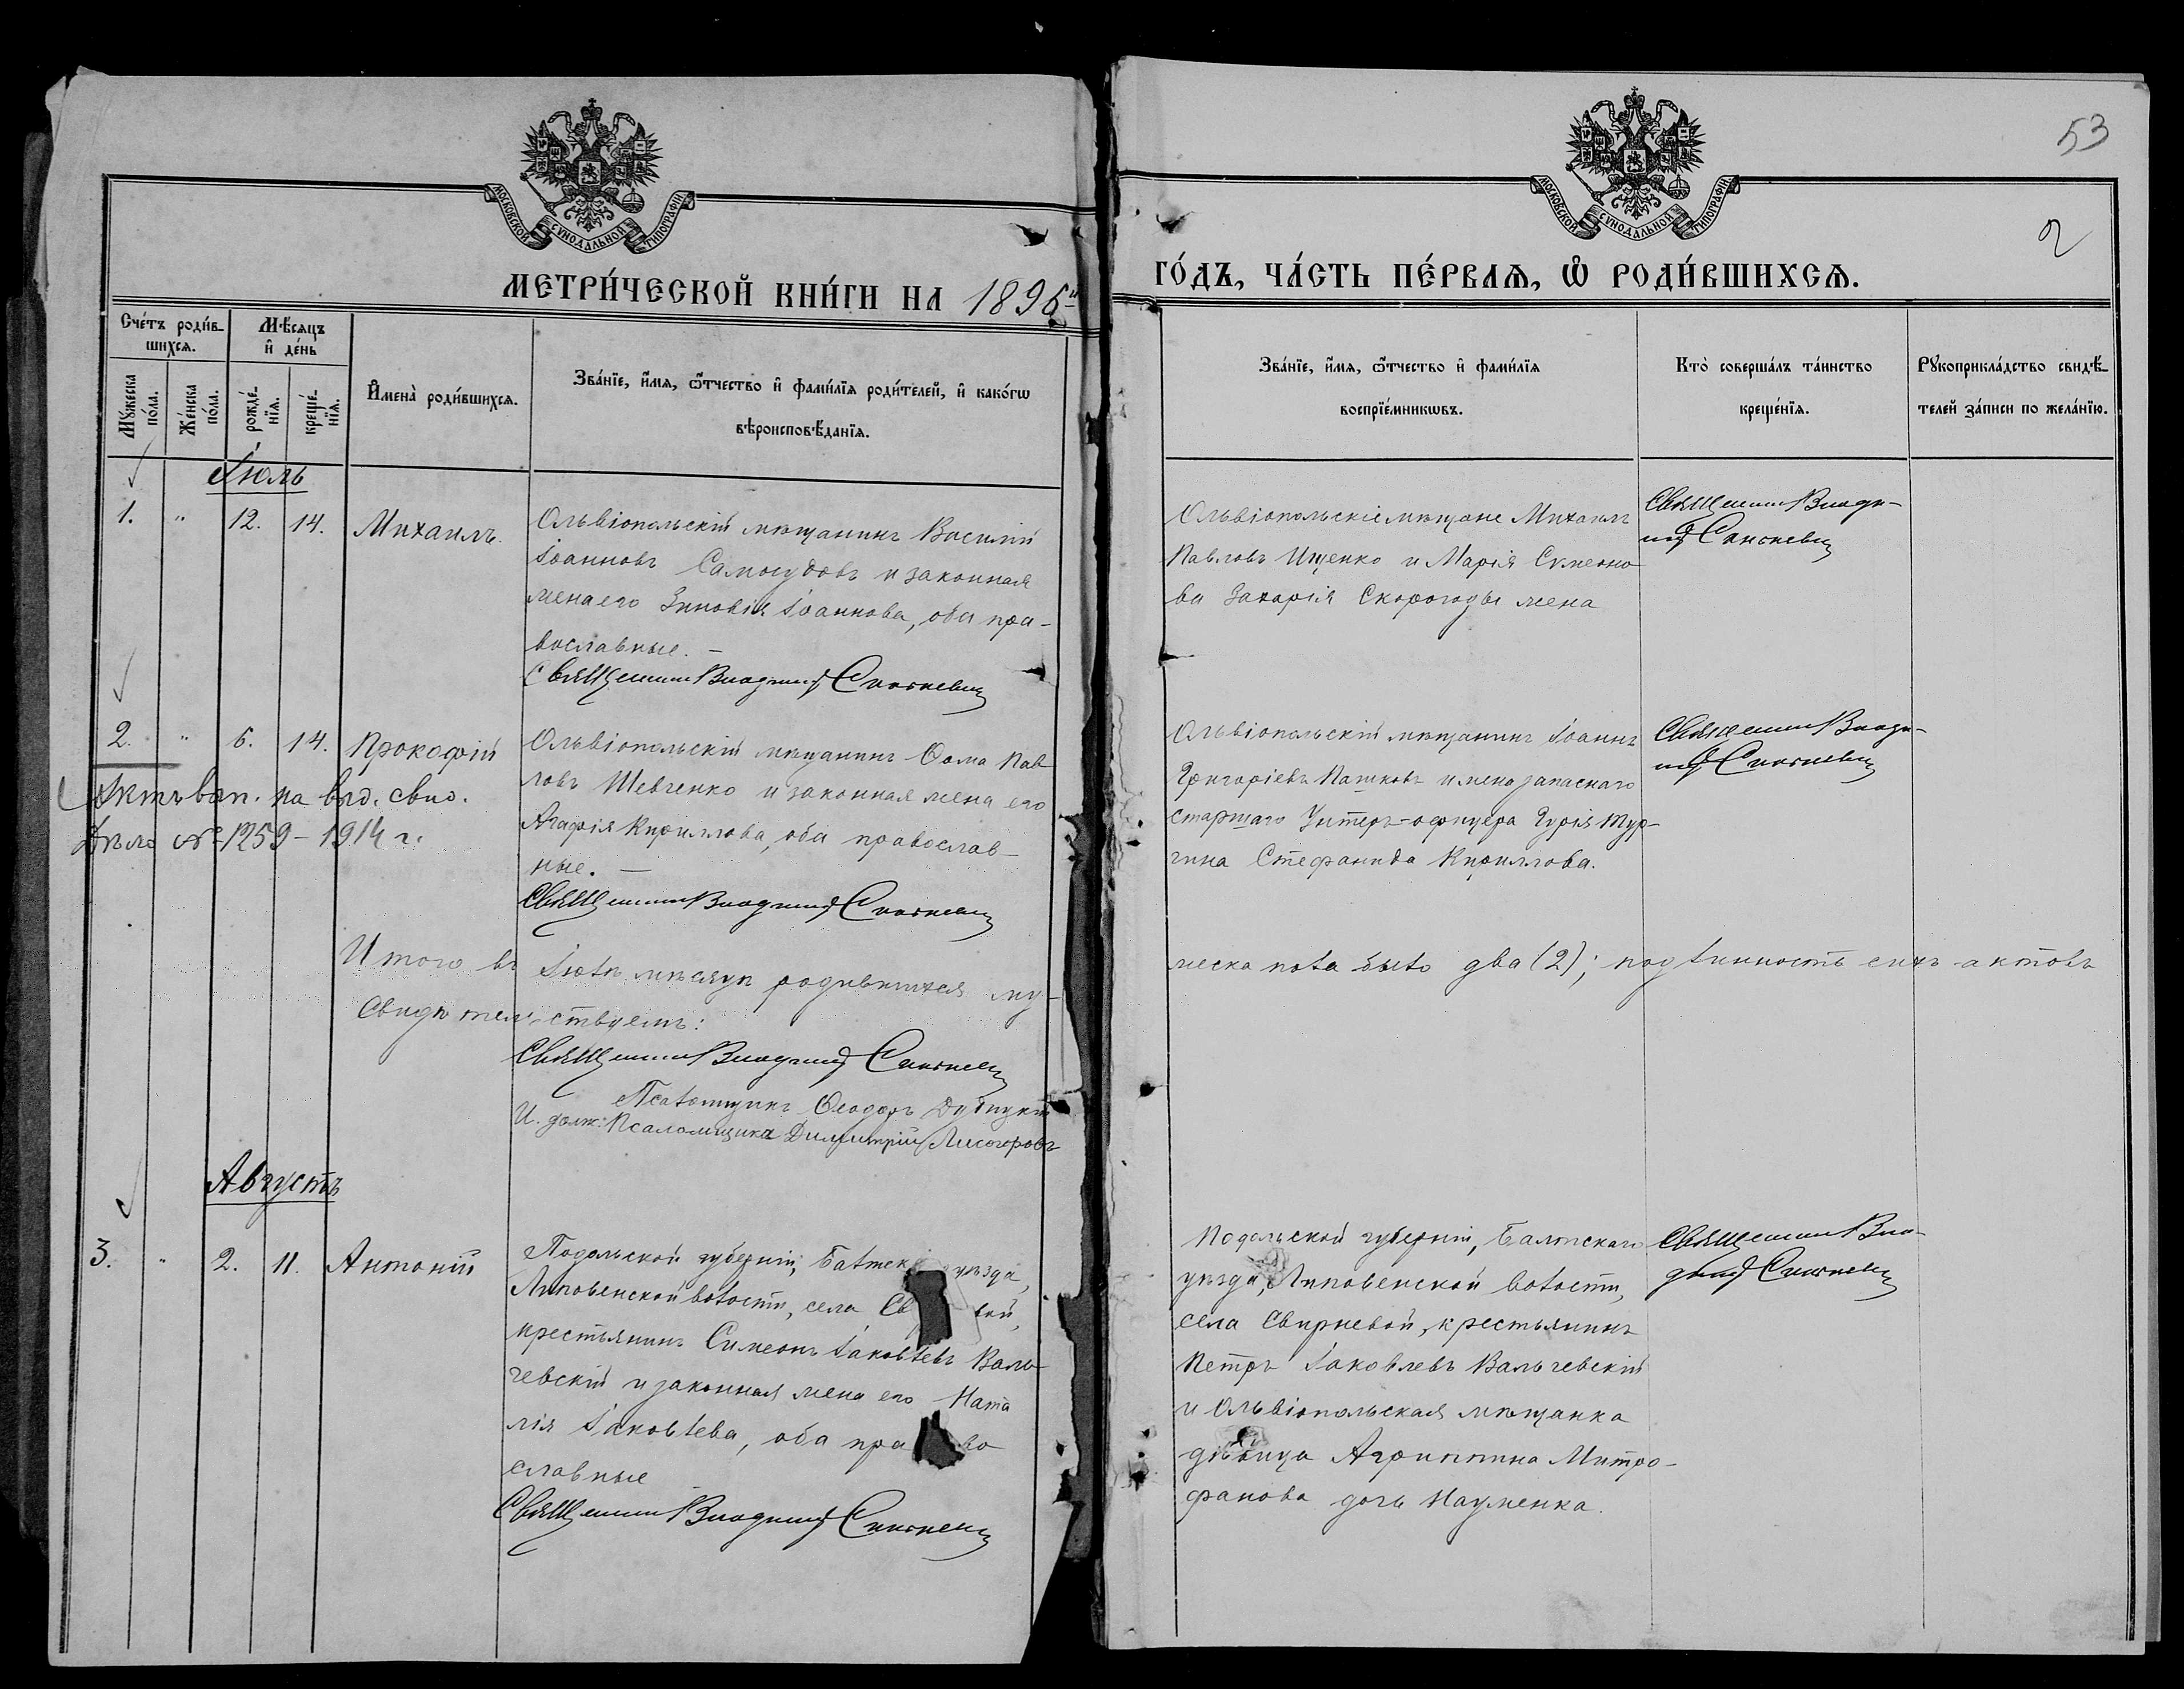 53
2
МОСКОВСКОЙ СѴНОДАЛЬНОЙ ТИПОГРАФІИ
МОСКОВСКОЙ СѴНОДАЛЬНОЙ ТИПОГРАФІИ
МЕТРИ́ЧЕСКОЙ КНИ́ГИ НА 1896 ГО́ДЪ, ЧА́СТЬ ПЕ́РВАѦ, Ѡ҆ РОДИ́ВШИХСѦ.
Сче́тъ роди́в-
шихсѧ.
Мꙋ́жеска по́ла.
Же́нска по́ла.
Мѣ́сѧцъ
и҆ де́нь
рожде́-нїѧ.
креще́-нїѧ.
И҆мена̀ роди́вшихсѧ.
Зва́нїе, и҆́мѧ, ѻ҆́тчество и҆ фами́лїѧ роди́телей, и҆ како́гѡ
вѣроисповѣ́данїѧ.
Зва́нїе, и҆́мѧ, ѻ҆́тчество и҆ фами́лїѧ
воспрїе́мникѡвъ.
Кто̀ соверша́лъ та́инство
креще́нїѧ.
Рꙋкоприкла́дство свидѣ́-
телей за́писи по жела́нїю.
Іюль
1. " 12. 14. Михаилъ.
Ольвіопольскій мѣщанинъ Василій
Іоанновъ Самосудовъ и законная
жена его Зиновія Іоаннова, оба пра-
вославные. –
Священникъ Владимиръ
Ольвіопольскіе мѣщане Михаилъ
Павловъ Ищенко и Марія Симеоно-
ва Захарія Скорогоды жена
Священникъ Влади-
миръ
2. " 6. 14. Прокофій
Ольвіопольскій мѣщанинъ Ѳома Пав-
ловъ Шевченко и законная жена его
Агафія Кириллова, оба православ-
ные. –
Священникъ Владимиръ
Ольвіопольскій мѣщанинъ Іоаннъ
Григоріевъ Пашковъ и жена запаснаго
старшаго Унтеръ-офицера Гурія Тур-
чина Стефанида Кириллова.
Священникъ Влади-
миръ
Актъ вып. на выд. свид.
Дѣло № 1259 – 1914 г.
Итого въ Іюлѣ мѣсяцѣ родившихся му-
жеска пола было два (2); подлинность сихъ актовъ
свидѣтельствуемъ:
Священникъ Владимиръ
Псаломщикъ Ѳеодоръ
И. долж. Псаломщика Димитрій Лисогоровъ
Августъ
3. " 2. 11. Антоній
Подольской губерніи, Балтск уѣзда,
Липовенской волости, села Св вой,
крестьянинъ Симеонъ Іаковлевъ Валь-
чевскій и законная жена его Ната-
лія Іаковлева, оба право-
славные
Священникъ Владимиръ
Подольской губерніи, Балтскаго
уѣзда, Липовенской волости,
села Свирневой, крестьянинъ
Петръ Іаковлевъ Вальчевскій
и Ольвіопольская мѣщанка
дѣвица Агриппина Митро-
фанова дочь Науменка.
Священникъ Вла-
димиръ